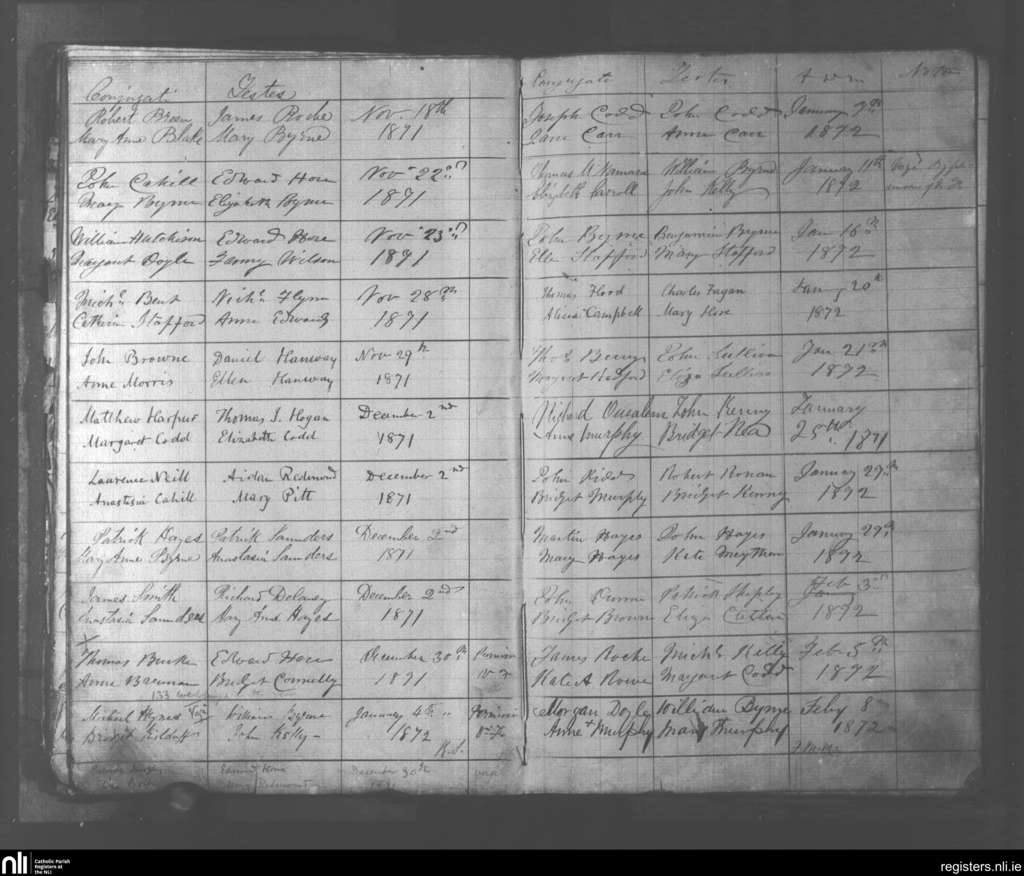 Conjugati Testes
Robert Breen James Roche Nov. 18th
Mary Anne Blake Mary Byrne 1871
John Cahill Edward Hore Nov 22nd
Mary Byrne Elizabeth Byrne 1871
William Hutchison Edward Hore Nov 23rd
Margaret Doyle Fanny Wilson 1871
Mich'l Bent Nich's Flynn Nov 28th
Stafford Anne Edwards 1871
John Browne Daniel Hanway Nov 29th
Anne Morris Ellen Hanway 1871
Matthew Harpur Thomas J. Hogan December 2nd
Margaret Codd Elizabeth Codd 1871
Laurence Neill Aiden Redmond December 2nd
Anastasia Cahill Mary Pitt 1871
Patrick Hayes Patrick Saunders December 2nd
Mary Anne Byrne Anastasia Saunders 1871
James Smith Richard Delaney December 2nd
Anastasia Saunders Mary Anne Hayes 1871
Thomas Burke Edward Hore December 30th
Anne Brennan Bridget Connolly 1871
133
Michael Hynes William Byrne January 4th
John Kelly 1872
December 30th
Conjugati Testes A D M Nota
Joseph Codd John Codd January 9th
Jane Carr Anne Carr 1872
Thomas McNamara William Byrne January 11th
Elizabeth John Kelly 1872
John Byrne Benjamin Byrne Jan 16th
Ellen Stafford Mary Stafford 1872
Thomas Flood Charles Fagan January 20th
Alicia Campbell Mary Hore 1872
Thos Berry John Sullivan Jan 21st
Margaret Redford Eliza Sullivan 1872
Richard John Kenny January
Anne Murphy Bridget 25th 1871
John Robert Ronan January 29th
Bridget Murphy Bridget Kenny 1872
Martin Hayes John Hayes January 29th
Mary Hayes Kate 1872
John Patrick Feb 3rd
Bridget Brown Eliza 1872
James Roche Mich'l Kelly Feb 5th
Kate A Rowe Margaret Codd 1872
Morgan Doyle William Byrne Feby 8
Anne Murphy Mary Murphy 1872
nli Catholic Parish Registers at the NLI
registers.nli.ie